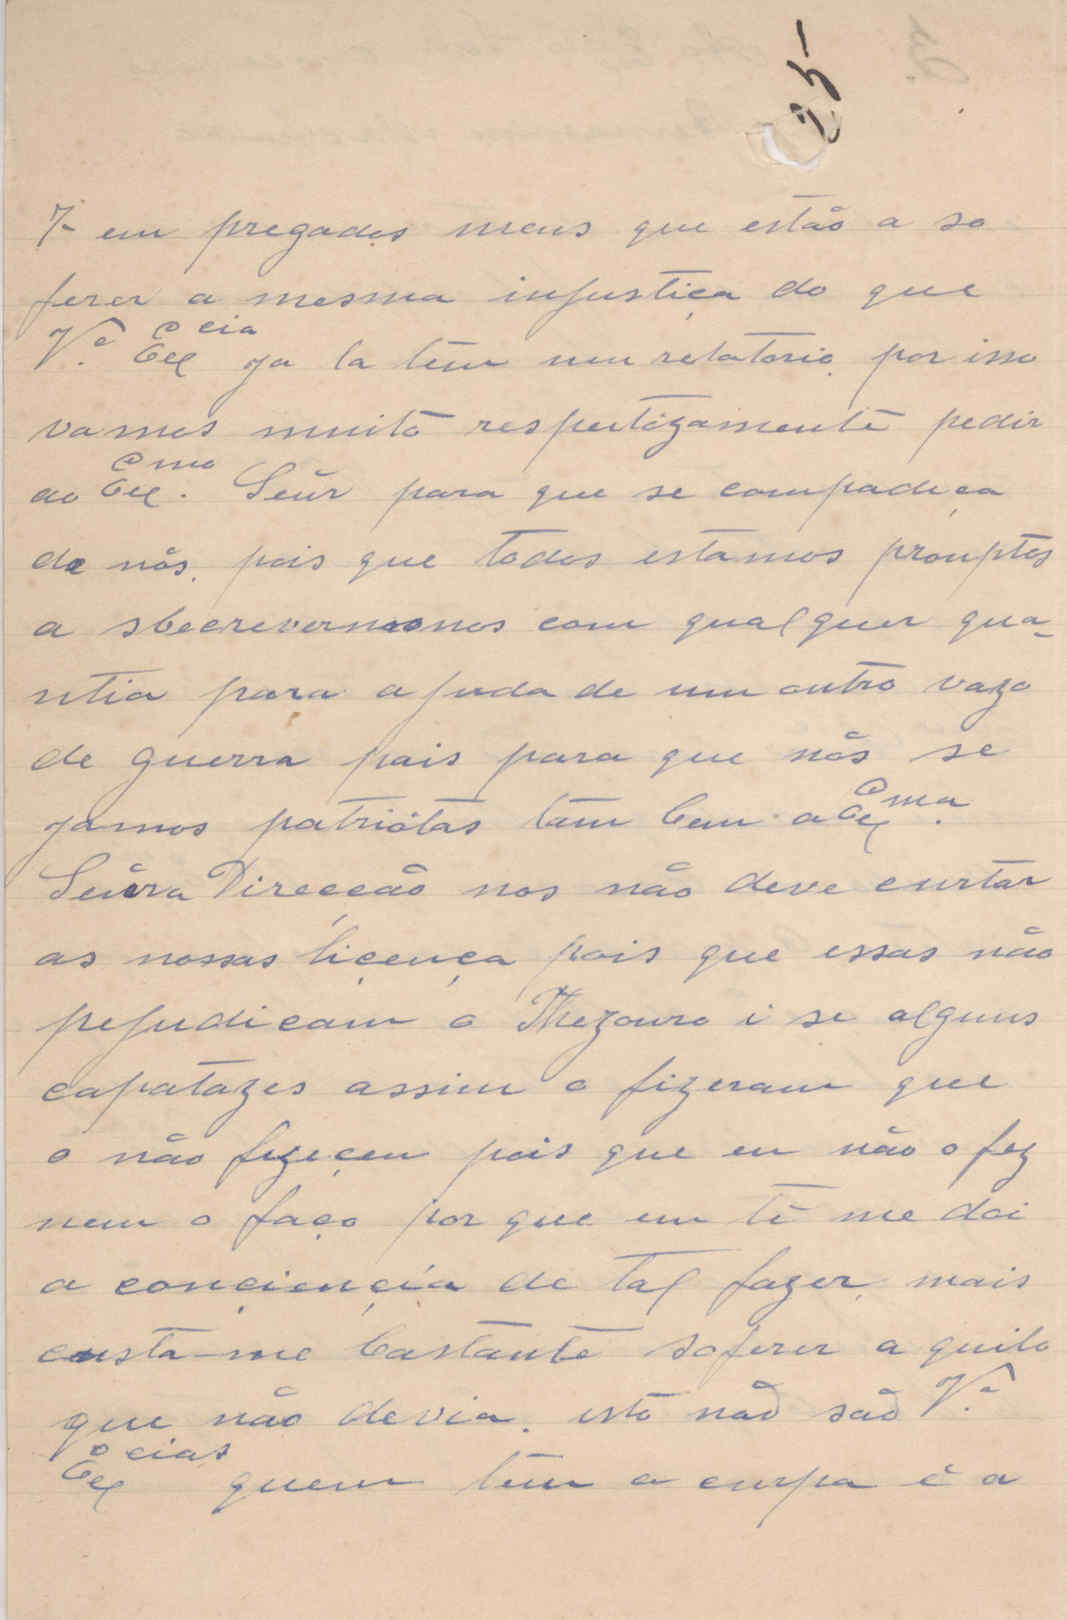 25-
7 em pregados meus que estão a so
ferer a mesma injustiça do que
V.ª Exª cia ja la têm um relatorio. por isso
vamos muito respeitozamente pedir
ao Exmo. Señr para que se compadeça
de nós. pois que todos estamos promptos
a sbecrevermonos com qualquer qua-
ntia para ajuda de um outro vazo
de guerra pais para que nós se
jamos patriótas tam bem a Exma.
Señra Direcção nos não deve curtar
as nossas liçença pois que essas não
pejudicam o Thezouro i se alguns
capatazes assim o fizeram que
o não fizeçem pois que eu não o fez
nem o faço por que em té me doi
a conçiençia de tal fazer. mais
custa-me bastante soferer a quilo
que não devia. isto não são V.ª
Ex cias quem têm a curpa é a